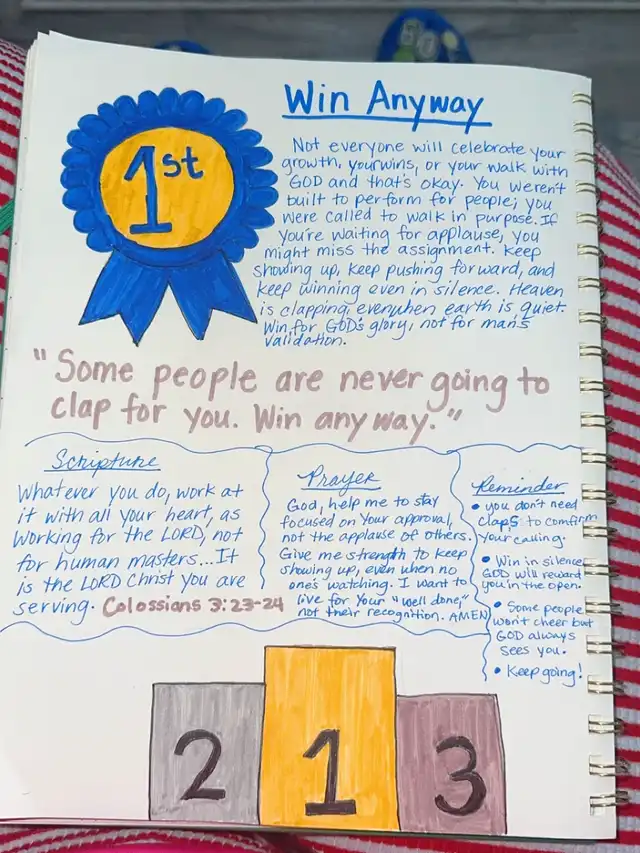 1st
Win Anyway
Not everyone will celebrate your
growth, your wins, or your walk with
GOD and that's okay. You weren't
built to perform for people; you
were called to walk in purpose. If
you're waiting for applause, you
might miss the assignment. Keep
showing up, keep pushing forward, and
keep winning even in silence. Heaven
is clapping, even when earth is quiet.
Win for GOD's glory, not for man's
validation.
"Some people are never going to
clap for you. Win any way."
Scripture
Whatever you do, work at
it with all your heart, as
working for the LORD, not
for human masters...It
is the LORD Christ you are
serving. Colossians 3:23-24
Prayer
God, help me to stay
focused on Your approval,
not the applause of others.
Give me strength to keep
showing up, even when no
one's watching. I want to
live for Your "well done,"
not their recognition. AMEN
Reminder
• you don't need
claps to confirm
your calling.
• Win in silence
GOD will reward
you in the open.
• Some people
won't cheer but
GOD always
sees you.
• Keep going!
2
1
3